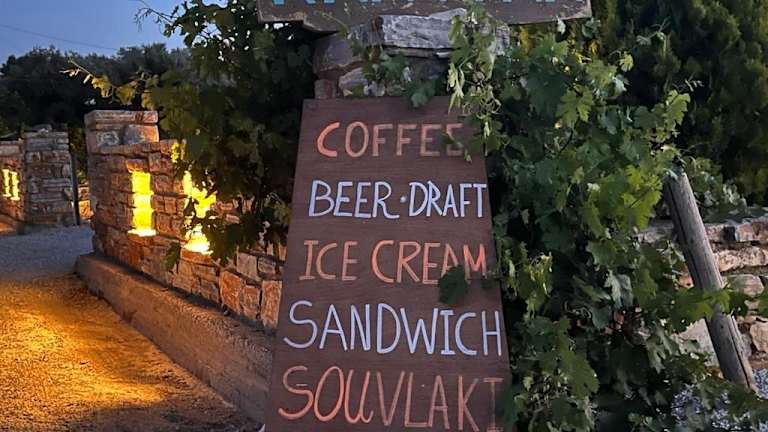 COFFEE
BEER·DRAFT
ICE CREAM
SANDWICH
SOUVLAKI